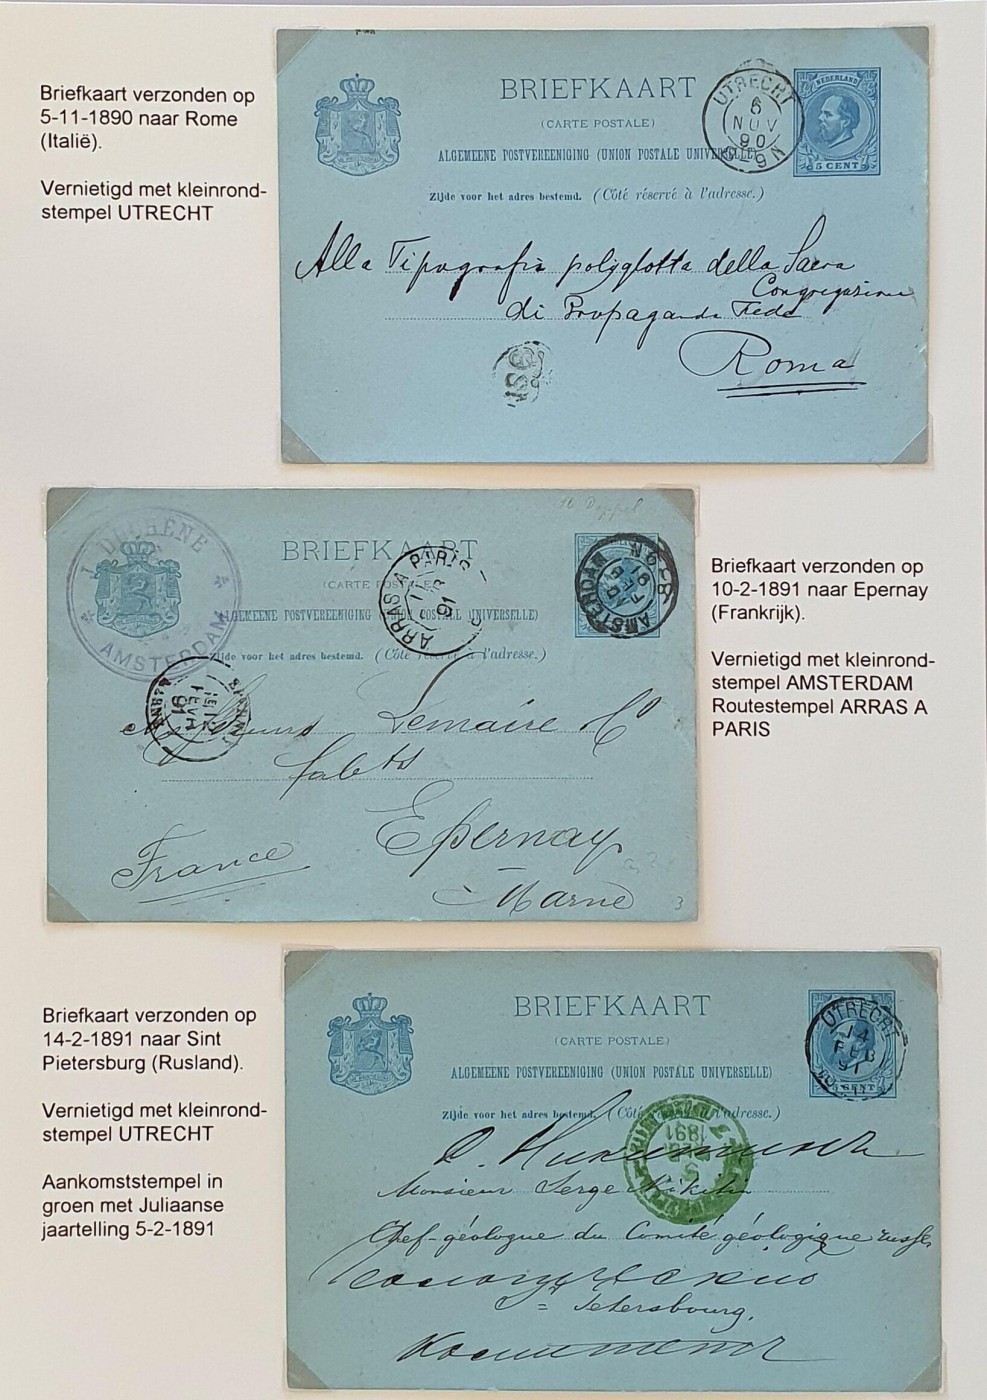 Briefkaart verzonden op
5-11-1890 naar Rome
(Italië).
Vernietigd met kleinrond-
stempel UTRECHT
BRIEFKAART
(CARTE POSTALE)
ALGEMEENE POSTVEREENIGING (UNION POSTALE UNIVERSELLE)
Zijde voor het adres bestemd. (Côté réservé à l'adresse.)
UTRECHT
6
NOV
90
NEDERLAND
5 CENT
Alla Tipografia poliglotta della Sacra
Congregazione
di Propaganda Fede
Roma
BRIEFKAART
(CARTE POSTALE)
ALGEMEENE POSTVEREENIGING (UNION POSTALE UNIVERSELLE)
Zijde voor het adres bestemd. (Côté réservé à l'adresse.)
AMSTERDAM
ARRAS A PARIS
91
AMSTERDAM
91
FEVR
91
Messieurs Lemaire & Co
Epernay
France
Marne
3
Briefkaart verzonden op
10-2-1891 naar Epernay
(Frankrijk).
Vernietigd met kleinrond-
stempel AMSTERDAM
Routestempel ARRAS A
PARIS
Briefkaart verzonden op
14-2-1891 naar Sint
Pietersburg (Rusland).
Vernietigd met kleinrond-
stempel UTRECHT
Aankomststempel in
groen met Juliaanse
jaartelling 5-2-1891
BRIEFKAART
(CARTE POSTALE)
ALGEMEENE POSTVEREENIGING (UNION POSTALE UNIVERSELLE)
Zijde voor het adres bestemd. (Côté réservé à l'adresse.)
UTRECHT
14
FEB
91
CENT
1891
5
Monsieur Serge Nikitin
Chef-géologue du Comité géologique russe
St Petersbourg.